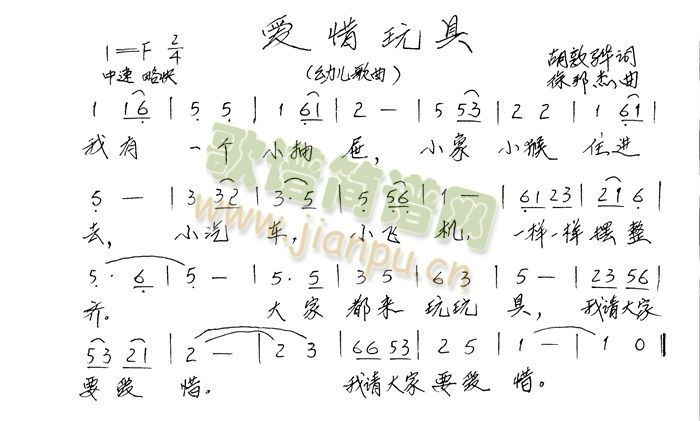 爱惜玩具
1=F 2/4
(幼儿歌曲)
胡敦骅词
中速 略快
徐邦杰曲
1 16 | 5 5 | 1 61 | 2 — | 5 53 | 2 2 | 1 61 |
我有 一个 小抽屉, 小象 小猴 住进
5 — | 3 32 | 3·5 | 5 56 | 1 — | 61 23 | 21 6 |
去, 小汽车, 小飞机, 一样一样摆整
5· 6 | 5 — | 5·5 | 3 5 | 6 3 | 5 — | 23 56 |
齐。 大家都来玩玩具, 我请大家
53 21 | 2 — | 2 3 | 66 53 | 2 5 | 1 — | 1 0 ||
要爱惜。 我请大家要爱惜。
歌谱简谱网
www.jianpu.cn